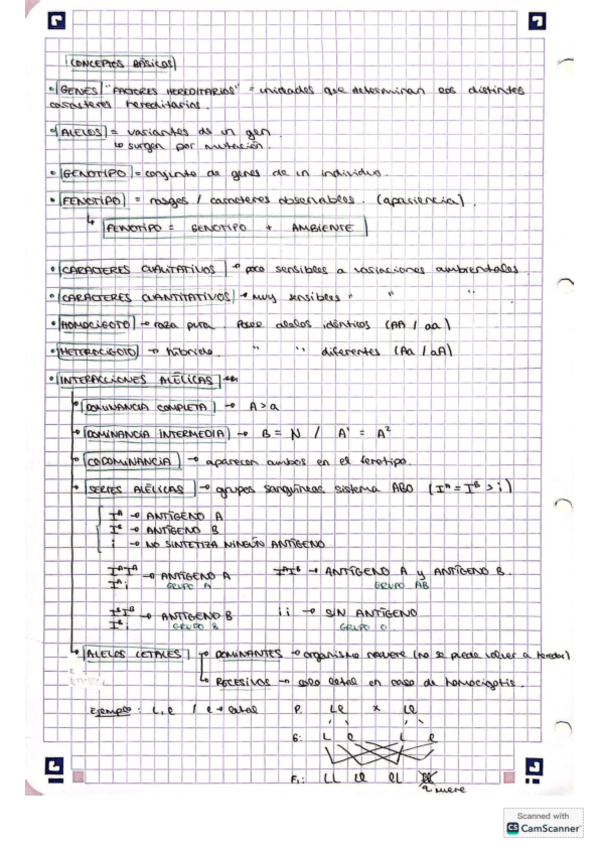 CONCEPTOS BÁSICOS
• GENES "FACTORES HEREDITARIOS" = unidades que determinan los distintos
caracteres hereditarios.
• ALELOS = variantes de un gen.
↳ surgen por mutación.
• GENOTIPO = conjunto de genes de un individuo.
• FENOTIPO = rasgos / caracteres observables. (apariencia).
↳ FENOTIPO = GENOTIPO + AMBIENTE
• CARACTERES CUALITATIVOS → poco sensibles a variaciones ambientales.
• CARACTERES CUANTITATIVOS → muy sensibles " " "
• HOMOCIGOTO → raza pura. Posee alelos idénticos (AA / aa)
• HETEROCIGOTO → híbrido. " " diferentes (Aa / aA)
• INTERACCIONES ALÉLICAS
→ DOMINANCIA COMPLETA → A > a
→ DOMINANCIA INTERMEDIA → B = N / A¹ = A²
→ CODOMINANCIA → aparecen ambos en el fenotipo.
→ SERIES ALÉLICAS → grupos sanguíneos sistema ABO (Iᴬ = Iᴮ > i)
Iᴬ → ANTÍGENO A
Iᴮ → ANTÍGENO B
i → NO SINTETIZA NINGÚN ANTÍGENO
IᴬIᴬ
Iᴬi → ANTÍGENO A
GRUPO A
IᴬIᴮ → ANTÍGENO A y ANTÍGENO B.
GRUPO AB
IᴮIᴮ
Iᴮi → ANTÍGENO B
GRUPO B
ii → SIN ANTÍGENO
GRUPO O
→ ALELOS LETALES → DOMINANTES → organismo muere (no se puede volver a heredar)
↳ RECESIVOS → solo letal en caso de homocigotis.
Ejemplo: L, l / l → letal P. Ll x Ll
G: L l L l
F₁: LL Ll lL ll
muere
Scanned with
CS CamScanner